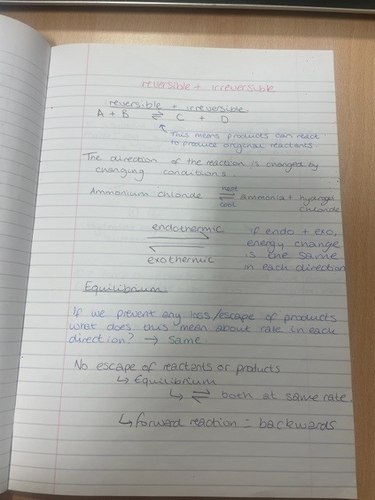 reversible + irreversible
reversible + irreversible
A + B ⇌ C + D
This means products can react
to produce original reactants
The direction of the reaction is changed by
changing conditions
Ammonium chloride heat ⇌ cool ammonia + hydrogen
chloride
endothermic
exothermic
if endo + exo,
energy change
is the same
in each direction
Equilibrium
If we prevent any loss/escape of products
what does this mean about rate in each
direction? → same
No escape of reactants or products
↳ Equilibrium
↳ ⇌ both at same rate
↳ forward reaction = backwards